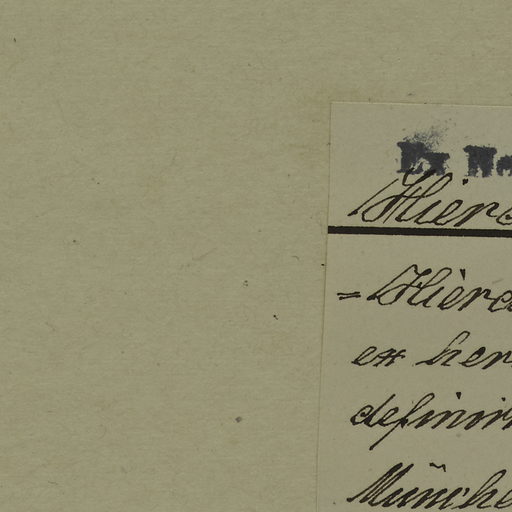 Ex He
Hierc
= Hierc
ex her
definir
Münche